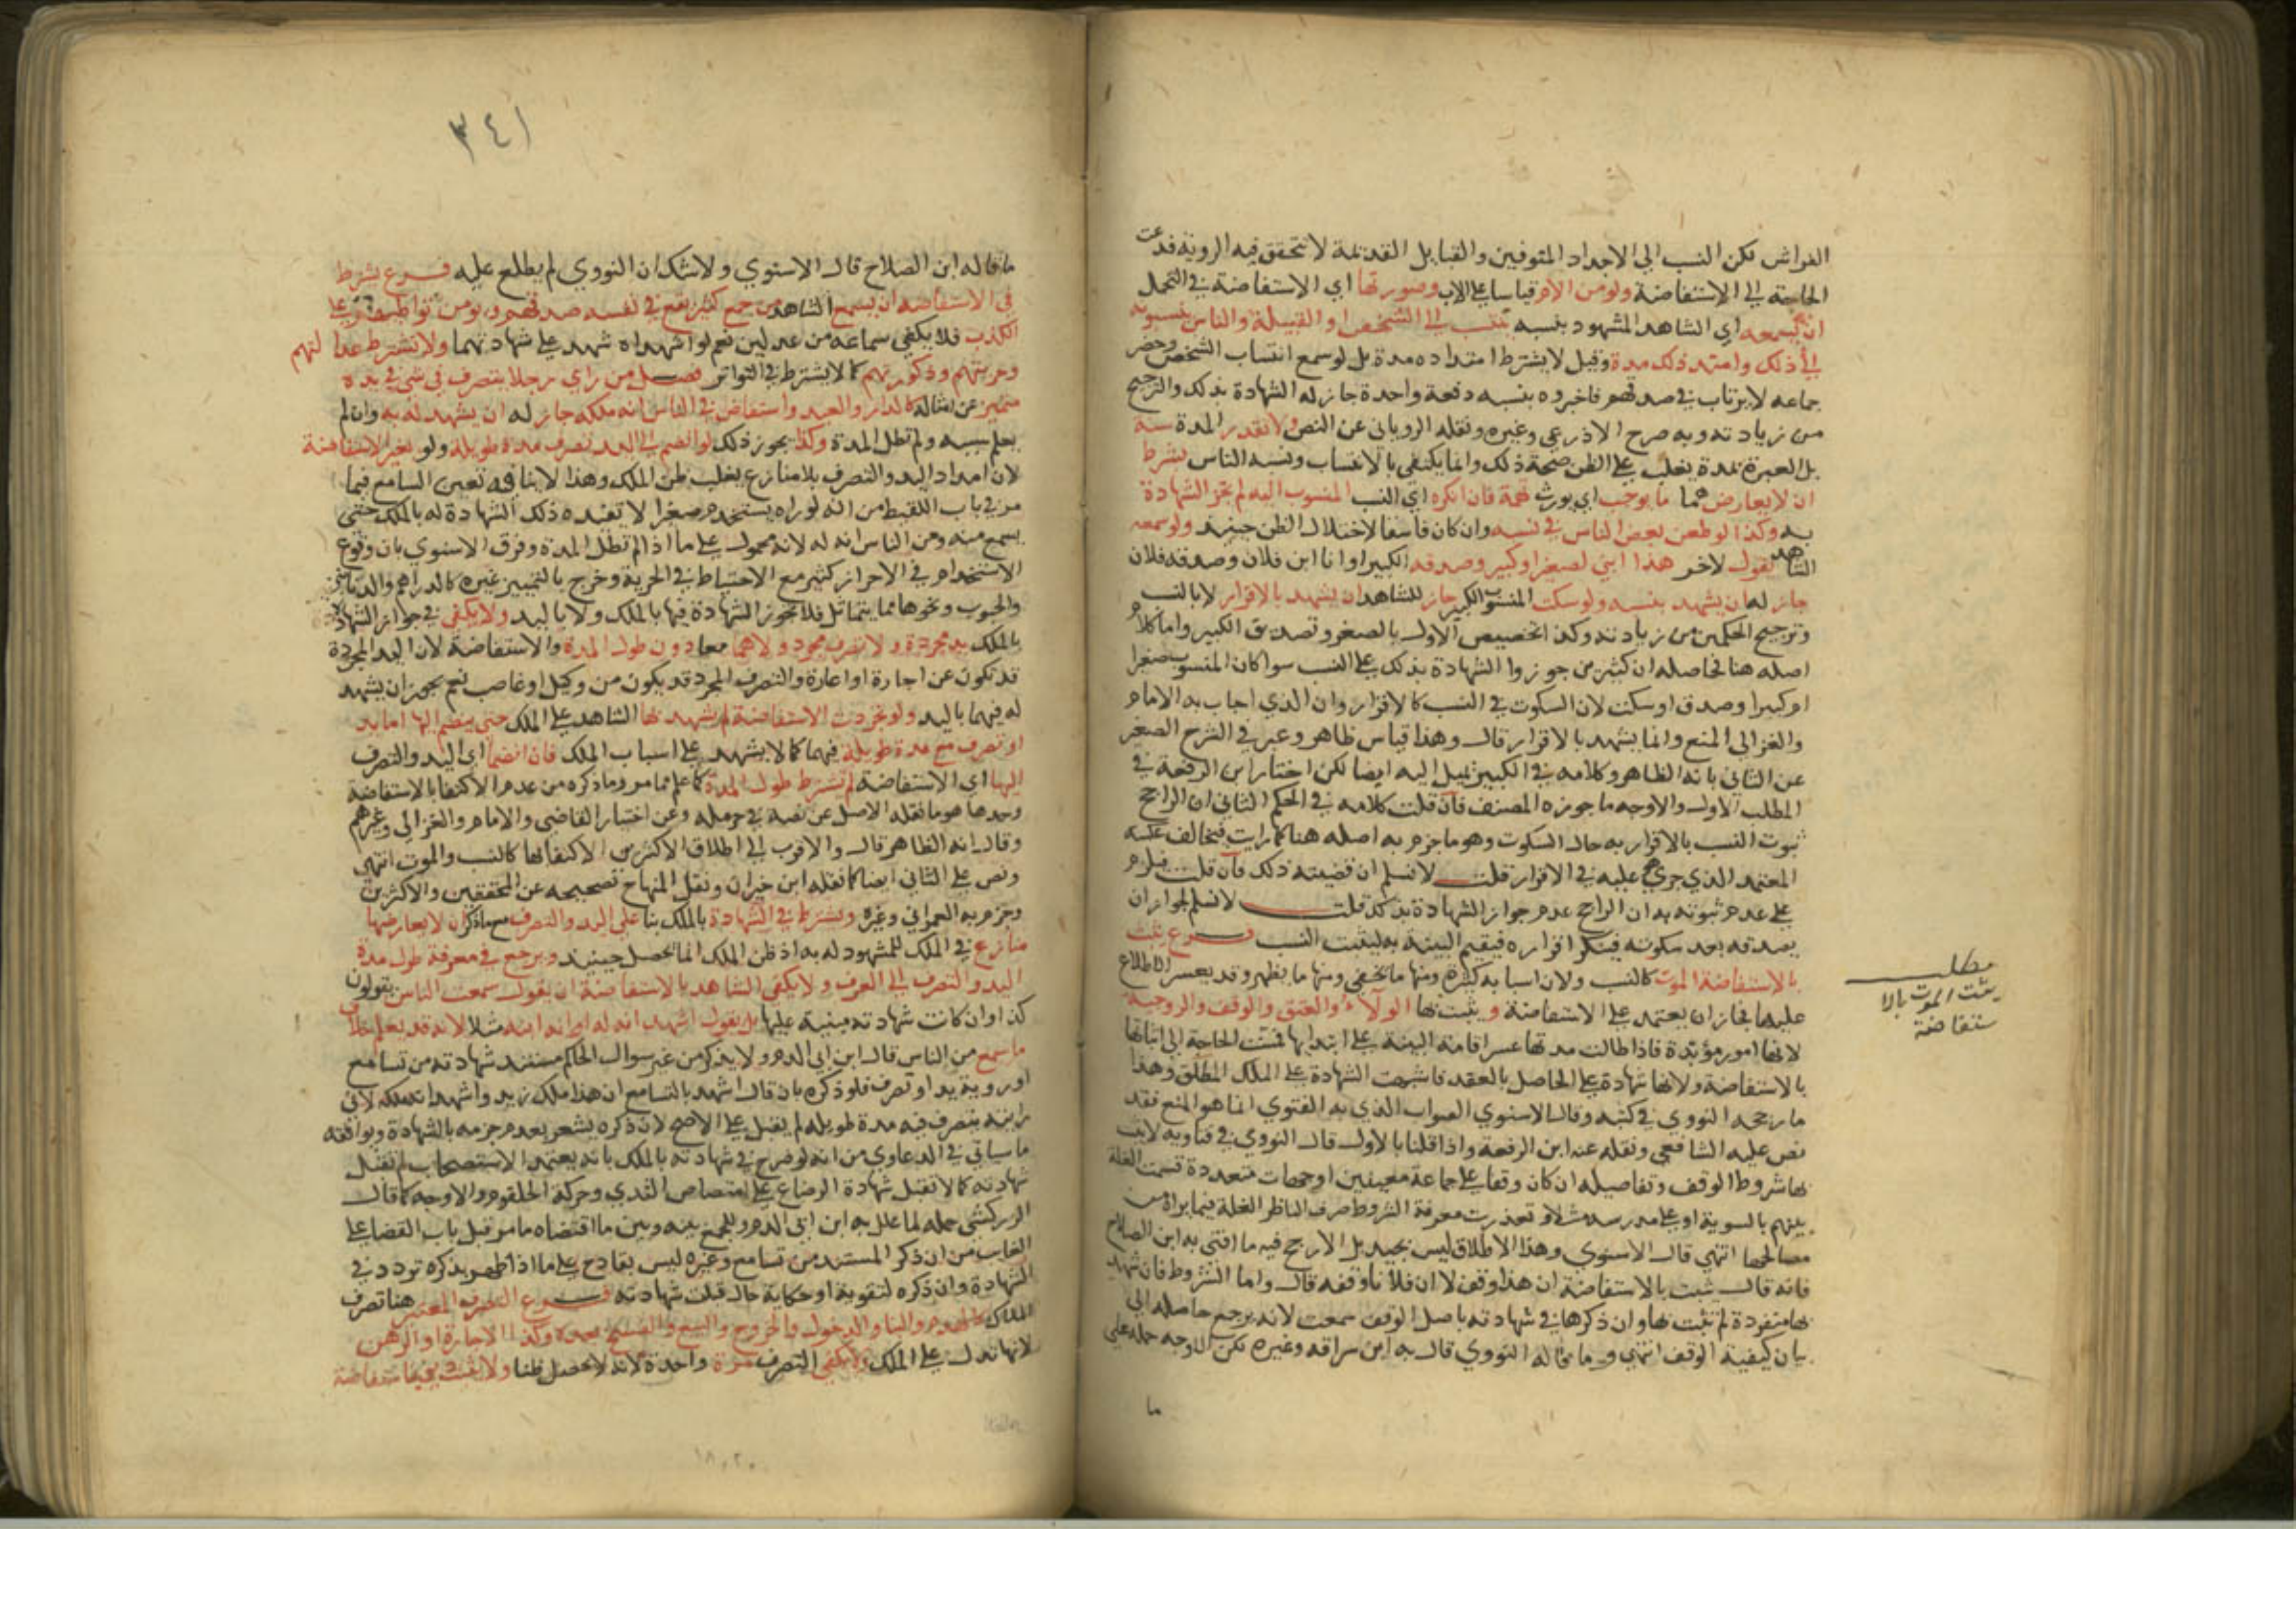 الفراش لكن النسب الى الاجداد المتوفين والقبايل القديمة لا تتحقق فيه الروية فدعت
الحاجة الى الاستفاضة ولو من الام قياسا على الاب وصورتها اي الاستفاضة في التحمل
ان يسمعه اي الشاهد المشهود بنسبه ينتسب الى الشخص او القبيلة والناس ينسبونه
الى ذلك وامتد ذلك مدة وقيل لا يشترط امتداده مدة بل لو سمع انتساب الشخص وحضر
جماعه لا يرتاب في صدقهم فاخبروه بنسبه دفعة واحدة جاز له الشهادة بذلك والترجيح
من زيادته وبه صرح الاذرعي وغيره ونقله الروياني عن النص ولا تقدر المدة بسنة
بل العبرة بمدة يغلب على الظن صحة ذلك وانما يكتفي بالانتساب ونسبه الناس بشرط
ان لا يعارضهما ما يوجب اي يورث تهمة فان انكره اي النسب المنسوب اليه لم تجز الشهادة
به وكذا لو طعن بعض الناس في نسبه وان كان فاسقا لاختلال الظن حينيذ ولو سمعه
الشاهد يقول لاخر هذا ابني لصغير او كبير وصدقه الكبير او انا ابن فلان وصدقه فلان
جاز له ان يشهد بنسبه ولو سكت المنسوب الكبير جاز للشاهد ان يشهد بالاقرار لا بالنسب
وترجيح الحكمين من زيادته وكذا تخصيص الاول بالصغير وتصديق الكبير واما كلام
اصله هنا فحاصله ان كثيرين جوزوا الشهادة بذلك على النسب سوا كان المنسوب صغيرا
او كبيرا وصدق او سكت لان السكوت في النسب كالاقرار وان الذي اجاب به الامام
والغزالي المنع وانما يشهد بالاقرار قال وهذا قياس ظاهر وعبر في الشرح الصغير
عن الثاني بانه الظاهر وكلامه في الكبير يميل اليه ايضا لكن اختار ابن الرفعة في
المطلب الاول والاوجه ما جوزه المصنف فان قلت كلامه في الحكم الثاني ان الراجح
ثبوت النسب بالاقرار به حال السكوت وهو ما جزم به اصله هنا كما رايت فيخالف عليه
المعتمد الذي جري عليه في الاقرار قلت لا نسلم ان قضيته ذلك فان قلت فيلزم
على عدم ثبوته به ان الراجح عدم جواز الشهادة بذلك قلت لا نسلم لجواز ان
يصدقه بعد سكوته فينكر اقراره فيقيم البينة به ليثبت النسب فــرع يثبت
بالاستفاضة الموت كالنسب ولان اسبابه كثيرة ومنها ما يخفي ومنها ما يظهر وقد يعسر الاطلاع
عليها فجاز ان يعتمد على الاستفاضة ويثبت بها الولاء والعتق والوقف والزوجية
لانها امور مؤبدة فاذا طالت مدتها عسر اقامة البينة على ابتدايها فمست الحاجة الى اثباتها
بالاستفاضة ولانها شهادة على الحاصل بالعقد فاشبهت الشهادة على الملك المطلق وهذا
ما رجحه النووي في كتبه وقال الاسنوي الصواب الذي به الفتوي انما هو المنع فقد
نص عليه الشافعي ونقله عنه ابن الرفعة واذا قلنا بالاول قال النووي في فتاويه لا يثبت
بها شروط الوقف وتفاصيله ان كان وقفا على جماعة معينين او جهات متعددة قسمت الغلة
بينهم بالسوية او على مدرسة مثلا وتعذرت معرفة الشروط صرف الناظر الغلة فيما يراه من
مصالحها انتهي قال الاسنوي وهذا الاطلاق ليس بجيد بل الارجح فيه ما افتى به ابن الصلاح
فانه قال يثبت بالاستفاضة ان هذا وقف لا ان فلانا وقفه قال واما الشروط فان شهد
بها منفردة لم تثبت بها وان ذكرها في شهادته باصل الوقف سمعت لانه يرجع حاصله الى
بيان كيفية الوقف انتهي وما قاله النووي قال به ابن سراقه وغيره لكن الاوجه حمله على
ما
مطلب
يثبت الموت بالا
ستفاضة
٣٤١
ما قاله ابن الصلاح قال الاسنوي ولا شك ان النووي لم يطلع عليه فــرع يشترط
في الاستفاضه ان يسمع الشاهد من جمع كثير يقع في نفسه صدقهم ويؤمن تواطئهم على
الكذب فلا يكفي سماعه من عدلين نعم لو اشهداه شهد على شهادتهما ولا تشترط عدالتهم
وحريتهم وذكورتهم كما لا يشترط في التواتر فصــل من راي رجلا يتصرف في شي في يده
متميز عن امثاله كالدار والعبد واستفاض في الناس انه ملكه جاز له ان يشهد له به وان لم
يعلم سببه ولم تطل المدة وكذا يجوز ذلك لو انضم الى اليد تصرف مدة طويلة ولو بغير الاستفاضة
لان امتداد اليد والتصرف بلا منازع يغلب ظن الملك وهذا لا ينافيه تعين السامع فيما
مر في باب اللقيط من انه لو راه يستخدم صغيرا لا تفيده ذلك الشهادة له بالملك حتى
يسمع منه ومن الناس انه له لانه محمول على ما اذا لم تطل المدة وفرق الاسنوي بان وقوع
الاستخدام في الاحرار كثير مع الاحتياط في الحرية وخرج بالتميز غيره كالدراهم والدنانير
والحبوب ونحوها مما يتماثل فلا تجوز الشهادة فيها بالملك ولا باليد ولا يكفي في جواز الشهادة
بالملك يد مجردة ولا تصرف مجرد ولا هما معا دون طول المدة والاستفاضة لان اليد المجردة
قد تكون عن اجارة او اعارة والتصرف المجرد قد يكون من وكيل او غاصب نعم يجوز ان يشهد
له فيهما باليد ولو تجردت الاستفاضة لم يشهد بها الشاهد على الملك حتى ينضم اليها اما يد
او تصرف مع مدة طويلة فيهما كما لا يشهد على اسباب الملك فان انضما اي اليد والتصرف
اليها اي الاستفاضة لم تشترط طول المدة كما علم مما مر وما ذكره من عدم الاكتفا بالاستفاضة
وحدها هو ما نقله الاصل عن نصه في حرملة وعن اختيار القاضي والامام والغزالي وغيرهم
وقال انه الظاهر قال والاقرب الى اطلاق الاكثرين الاكتفا بها كالنسب والموت انتهى
ونص على الثاني ايضا كما نقله ابن خيران ونقل المنهاج تصحيحه عن المحققين والاكثرين
وجزم به العمراني وغيره ويشترط في الشهادة بالملك بنا على اليد والتصرف مع ما ذكر ان لا يعارضها
منازع في الملك للمشهود له به اذ ظن الملك انما يحصل حينيذ ويرجع في معرفة طول مدة
اليد والتصرف الى العرف ولا يكفي الشاهد بالاستفاضة ان يقول سمعت الناس يقولون
كذا وان كانت شهادته مبنية عليها بل يقول اشهد انه له او انه ابنه مثلا لانه قد يعلم خلاف
ما سمع من الناس قال ابن ابي الدم ولا يذكر من غير سوال الحاكم مستند شهادته من تسامع
او روية يد او تصرف فلو ذكره بان قال اشهد بالتسامع ان هذا ملك زيد واشهد انه ملكه لاني
رايته يتصرف فيه مدة طويلة لم يقبل على الاصح لان ذكره يشعر بعدم جزمه بالشهادة ويوافقه
ما سياتي في الدعاوي من انه لو صرح في شهادته بالملك بانه يعتمد الاستصحاب لم تقبل
شهادته كما لا تقبل شهادة الرضاع على امتصاص الثدي وحركة الحلقوم والاوجه كما قال
الزركشي حمله لما علل به ابن ابي الدم وللجمع بينه وبين ما اقتضاه ما مر قبيل باب القضا على
الغايب من ان ذكر المستند من تسامع وغيره ليس بقادح على ما اذا ظهر بذكره تردد في
الشهادة وان ذكره لتقوية او حكاية حال قبلت شهادته فــرع التصرف المعتبر هنا تصرف
الملاك كالهدم والبنا والدخول والخروج والبيع والفسخ بعده وكذا الاجارة او الرهن
لانها تدل على الملك ولا يكفي التصرف مرة واحدة لانه لا يحصل ظنا ولا يثبت دين باستفاضة